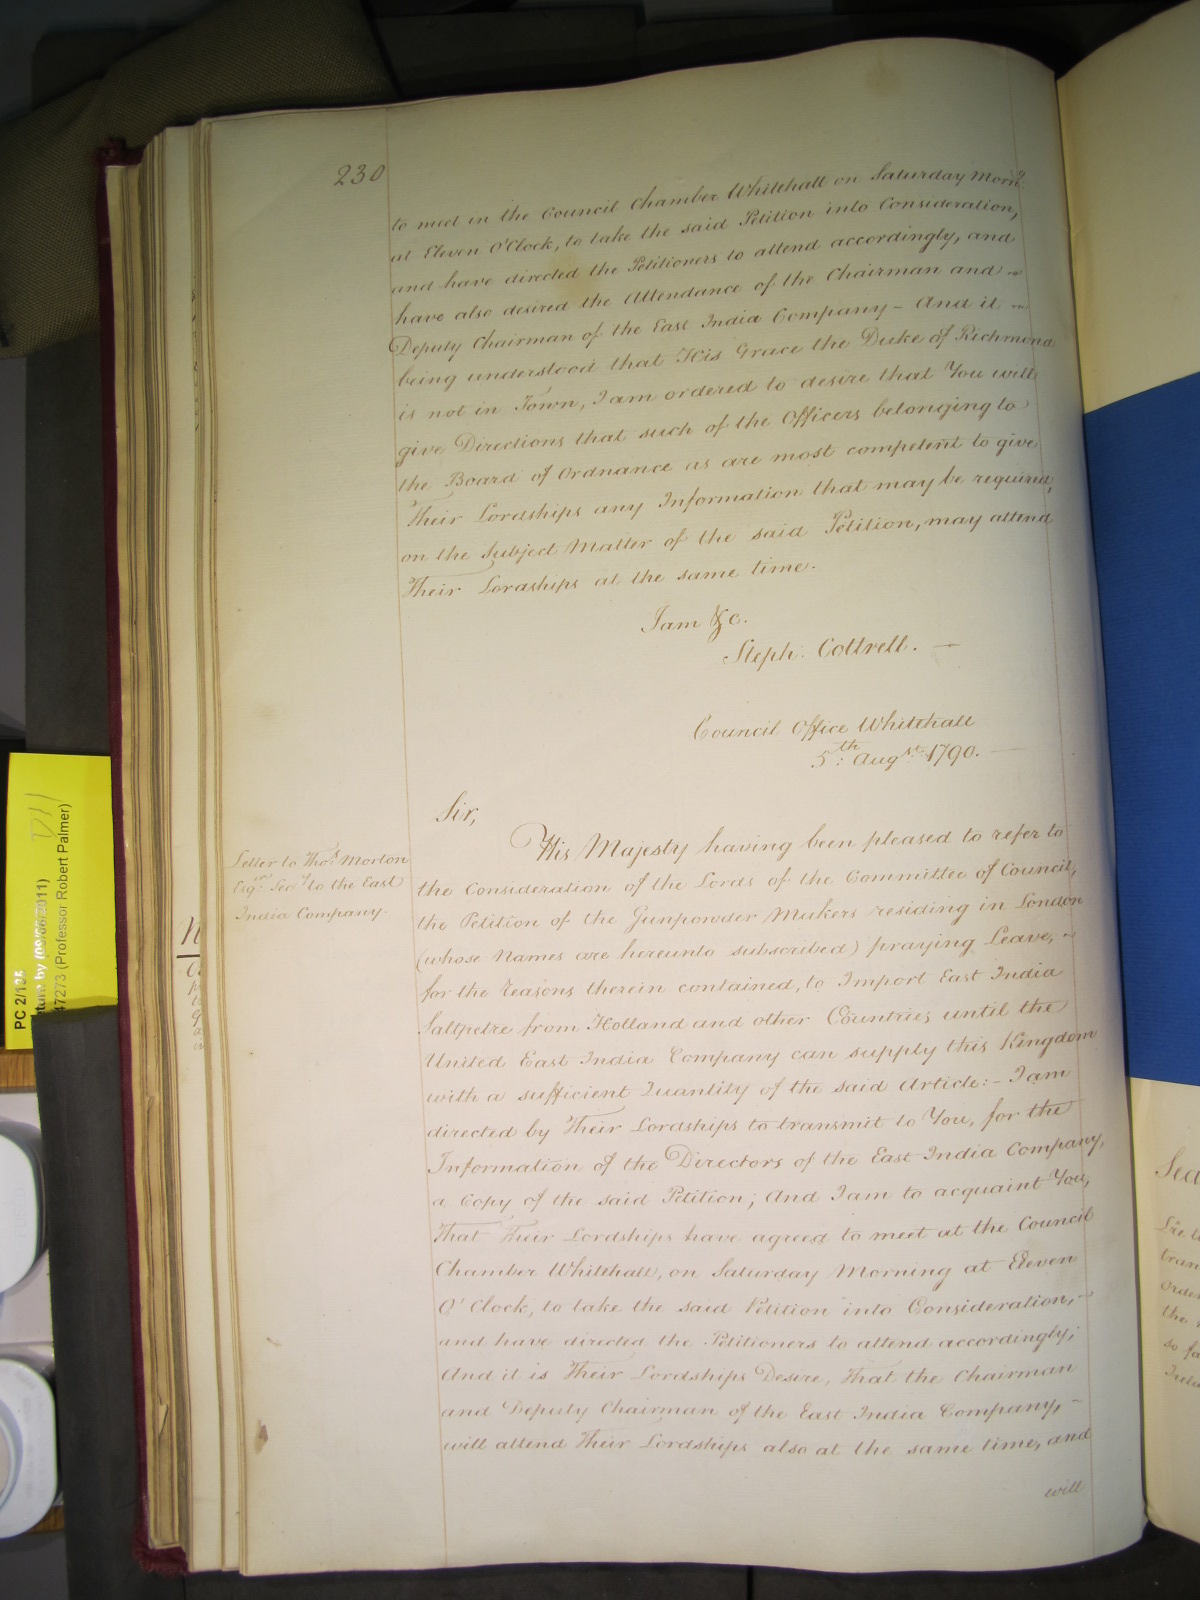 230
to meet in the Council Chamber Whitehall on Saturday Morn.g
at Eleven O'Clock, to take the said Petition into Consideration,
and have directed the Petitioners to attend accordingly, and
have also desired the Attendance of the Chairman and
Deputy Chairman of the East India Company - And it
being understood that His Grace the Duke of Richmond
is not in Town, I am ordered to desire that You will
give Directions that such of the Officers belonging to
the Board of Ordnance as are most competent to give
Their Lordships any Information that may be required,
on the Subject Matter of the said Petition, may attend
Their Lordships at the same time.
I am &c.
Steph. Cottrell. —
Council Office Whitehall
5th: Augst. 1790.
Sir,
His Majesty having been pleased to refer to
Letter to Thos. Morton
Esqr. Secy. to the East
India Company.
the Consideration of the Lords of the Committee of Council,
the Petition of the Gunpowder Makers residing in London
(whose Names are hereunto subscribed) praying Leave,
for the reasons therein contained, to Import East India
Saltpetre from Holland and other Countries until the
United East India Company can supply this Kingdom
with a sufficient Quantity of the said Article:- I am
directed by Their Lordships to transmit to You, for the
Information of the Directors of the East India Company,
a Copy of the said Petition; And I am to acquaint You,
That Their Lordships have agreed to meet at the Council
Chamber Whitehall, on Saturday Morning at Eleven
O'Clock, to take the said Petition into Consideration,
and have directed the Petitioners to attend accordingly;
And it is Their Lordships Desire, That the Chairman
and Deputy Chairman of the East India Company,
will attend Their Lordships also at the same time, and
will
PC 2/135
by (09/06/2011)
47273 (Professor Robert Palmer)